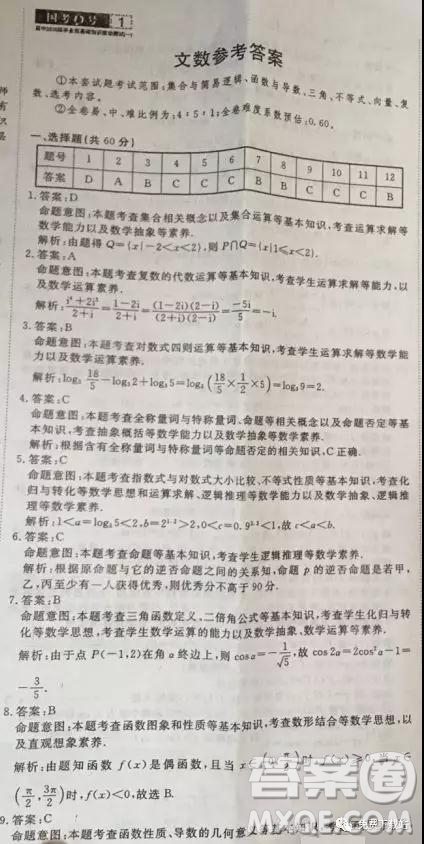 国考1号 1
文数参考答案
①本套试题考试范围:集合与简易逻辑、函数与导数、三角、不等式、向量、复
数、选考内容.
②全卷易、中、难比例为:4:5:1;全卷难度系数预估:0.60.
一、选择题(共60分)
题号 1 2 3 4 5 6 7 8 9 10 11 12
答案 D A B C C C B B C C C B
1.答案:D
命题意图:本题考查集合相关概念以及集合运算等基本知识,考查运算求解等
数学能力以及数学抽象等素养.
解析:由题得 Q={x|-2<x<2},则 P∩Q={x|1≤x<2}.
2.答案:A
命题意图:本题考查复数的代数运算等基本知识,考查学生运算求解等能力,以
及数学运算素养.
解析:(i⁴+2i³)/(2+i)=(1-2i)/(2+i)=(1-2i)(2-i)/(2+i)(2-i)=-5i/5=-i.
3.答案:B
命题意图:本题考查对数式四则运算等基本知识,考查学生运算求解等数学能
力以及数学运算素养.
解析:log₃ 18/5 - log₃2+log₃5=log₃(18/5×1/2×5)=log₃9=2.
4.答案:C
命题意图:本题考查全称量词与特称量词、命题等相关概念以及命题否定等基
本知识,考查抽象概括等数学能力以及数学抽象等数学素养.
解析:根据含有全称量词与特称量词等命题否定的相关知识,C正确.
5.答案:C
命题意图:本题考查指数式与对数式大小比较、不等式性质等基本知识,考查化
归与转化等数学思想和运算求解、逻辑推理等数学能力以及数学抽象、逻辑推
理等数学素养.
6.答案:C
命题意图:本题考查命题等基本知识,考查学生逻辑推理等数学素养.
解析:根据原命题与它的逆否命题之间的关系知,命题 p 的逆否命题是若甲,
乙,丙至少有一人获得优秀,则优秀分不高于90分.
7.答案:B
命题意图:本题考查三角函数定义、二倍角公式等基本知识,考查学生化归与转
化等数学思想,考查学生数学运算的能力以及数学抽象、数学运算等素养.
解析:由于点 P(-1,2)在角 α 终边上,则 cosα=-1/√5,故 cos2α=2cos²α-1=
-3/5.
8.答案:B
命题意图:本题考查函数图象和性质等基本知识,考查数形结合等数学思想,以
及直观想象素养.
解析:由题知函数 f(x)是偶函数,且当 x∈
(π/2,3π/2)时,f(x)<0,故选 B.
9.答案:C
命题意图:本题考查函数性质、导数的几何意义
答案圈
免费下载